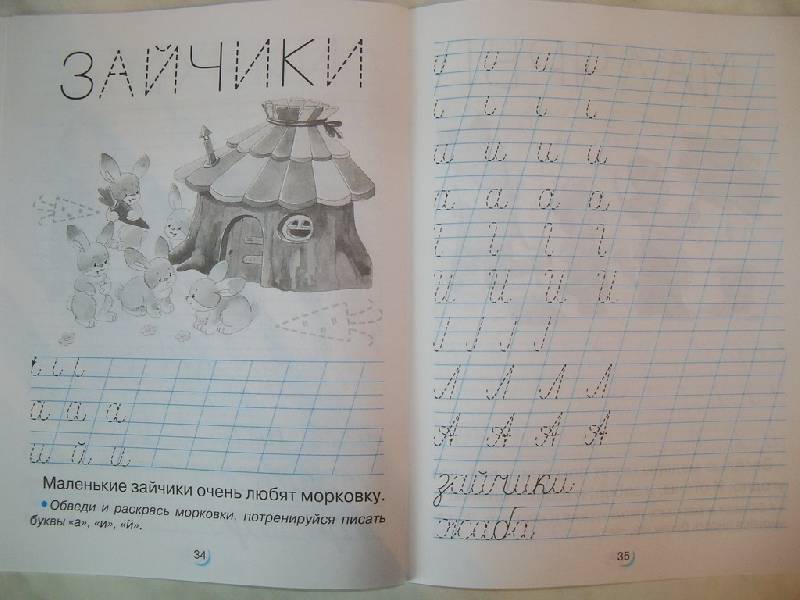 ЗАЙЧИКИ
а а а
и й и
Маленькие зайчики очень любят морковку.
• Обведи и раскрась морковки, потренируйся писать
буквы «а», «и», «й».
34
и и и и
а а а а
И И И И
Л Л Л Л
А А А А
зайчики
жаба
35